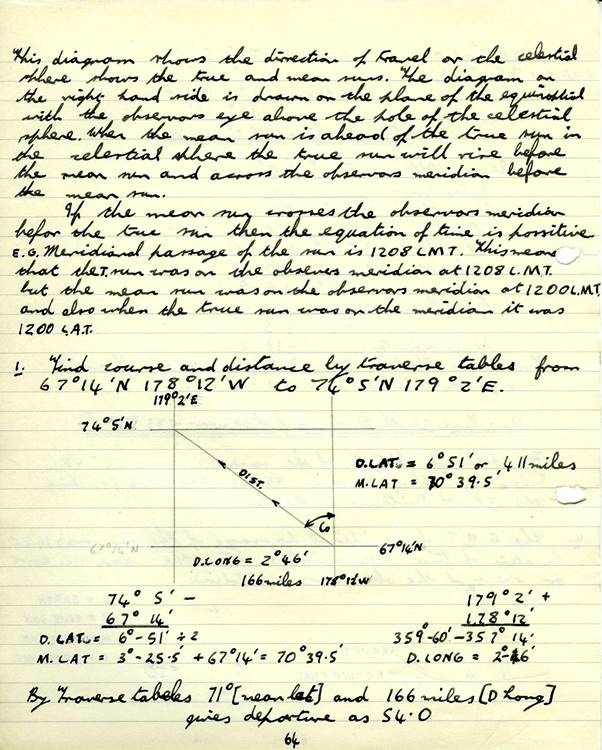 This diagram shows the direction of travel or the celestial
sphere shows the true and mean suns. The diagram on
the right hand side is drawn on the plane of the equinoctial
with the observors eye above the pole of the celestial
sphere. When the mean sun is ahead of the true sun in
the celestial sphere the true sun will rise before
the mean sun and across the observors meridian before
the mean sun.
If the mean sun crosses the observors meridian
befor the true sun then the equation of time is possitive
E.G. Meridianal passage of the sun is 1208 LMT. This means
that the T. sun was on the observers meridian at 1208 L.M.T.
but the mean sun was on the observors meridian at 1200 L.M.T,
and also when the true sun was on the meridian it was
1200 L.A.T.
1. Find course and distance by traverse tables from
67°14'N 178°12'W to 74°5'N 179°2'E.
179°2'E
74°5'N
DIST.
D.LAT = 6°51' or 411 miles
M.LAT = 70°39.5'
Co
67°14'N
67°14'N
D.LONG = 2°46'
166 miles 178°12'W
74° 5' - 179° 2' +
67° 14' 178° 12'
D. LAT = 6°-51' ÷ 2 359°-60' - 357° 14'
M. LAT = 3°-25.5' + 67°14' = 70°39.5' D. LONG = 2°-46'
By Traverse tabeles 71° [mean lat] and 166 miles [D Long]
gives departure as 54.0
64